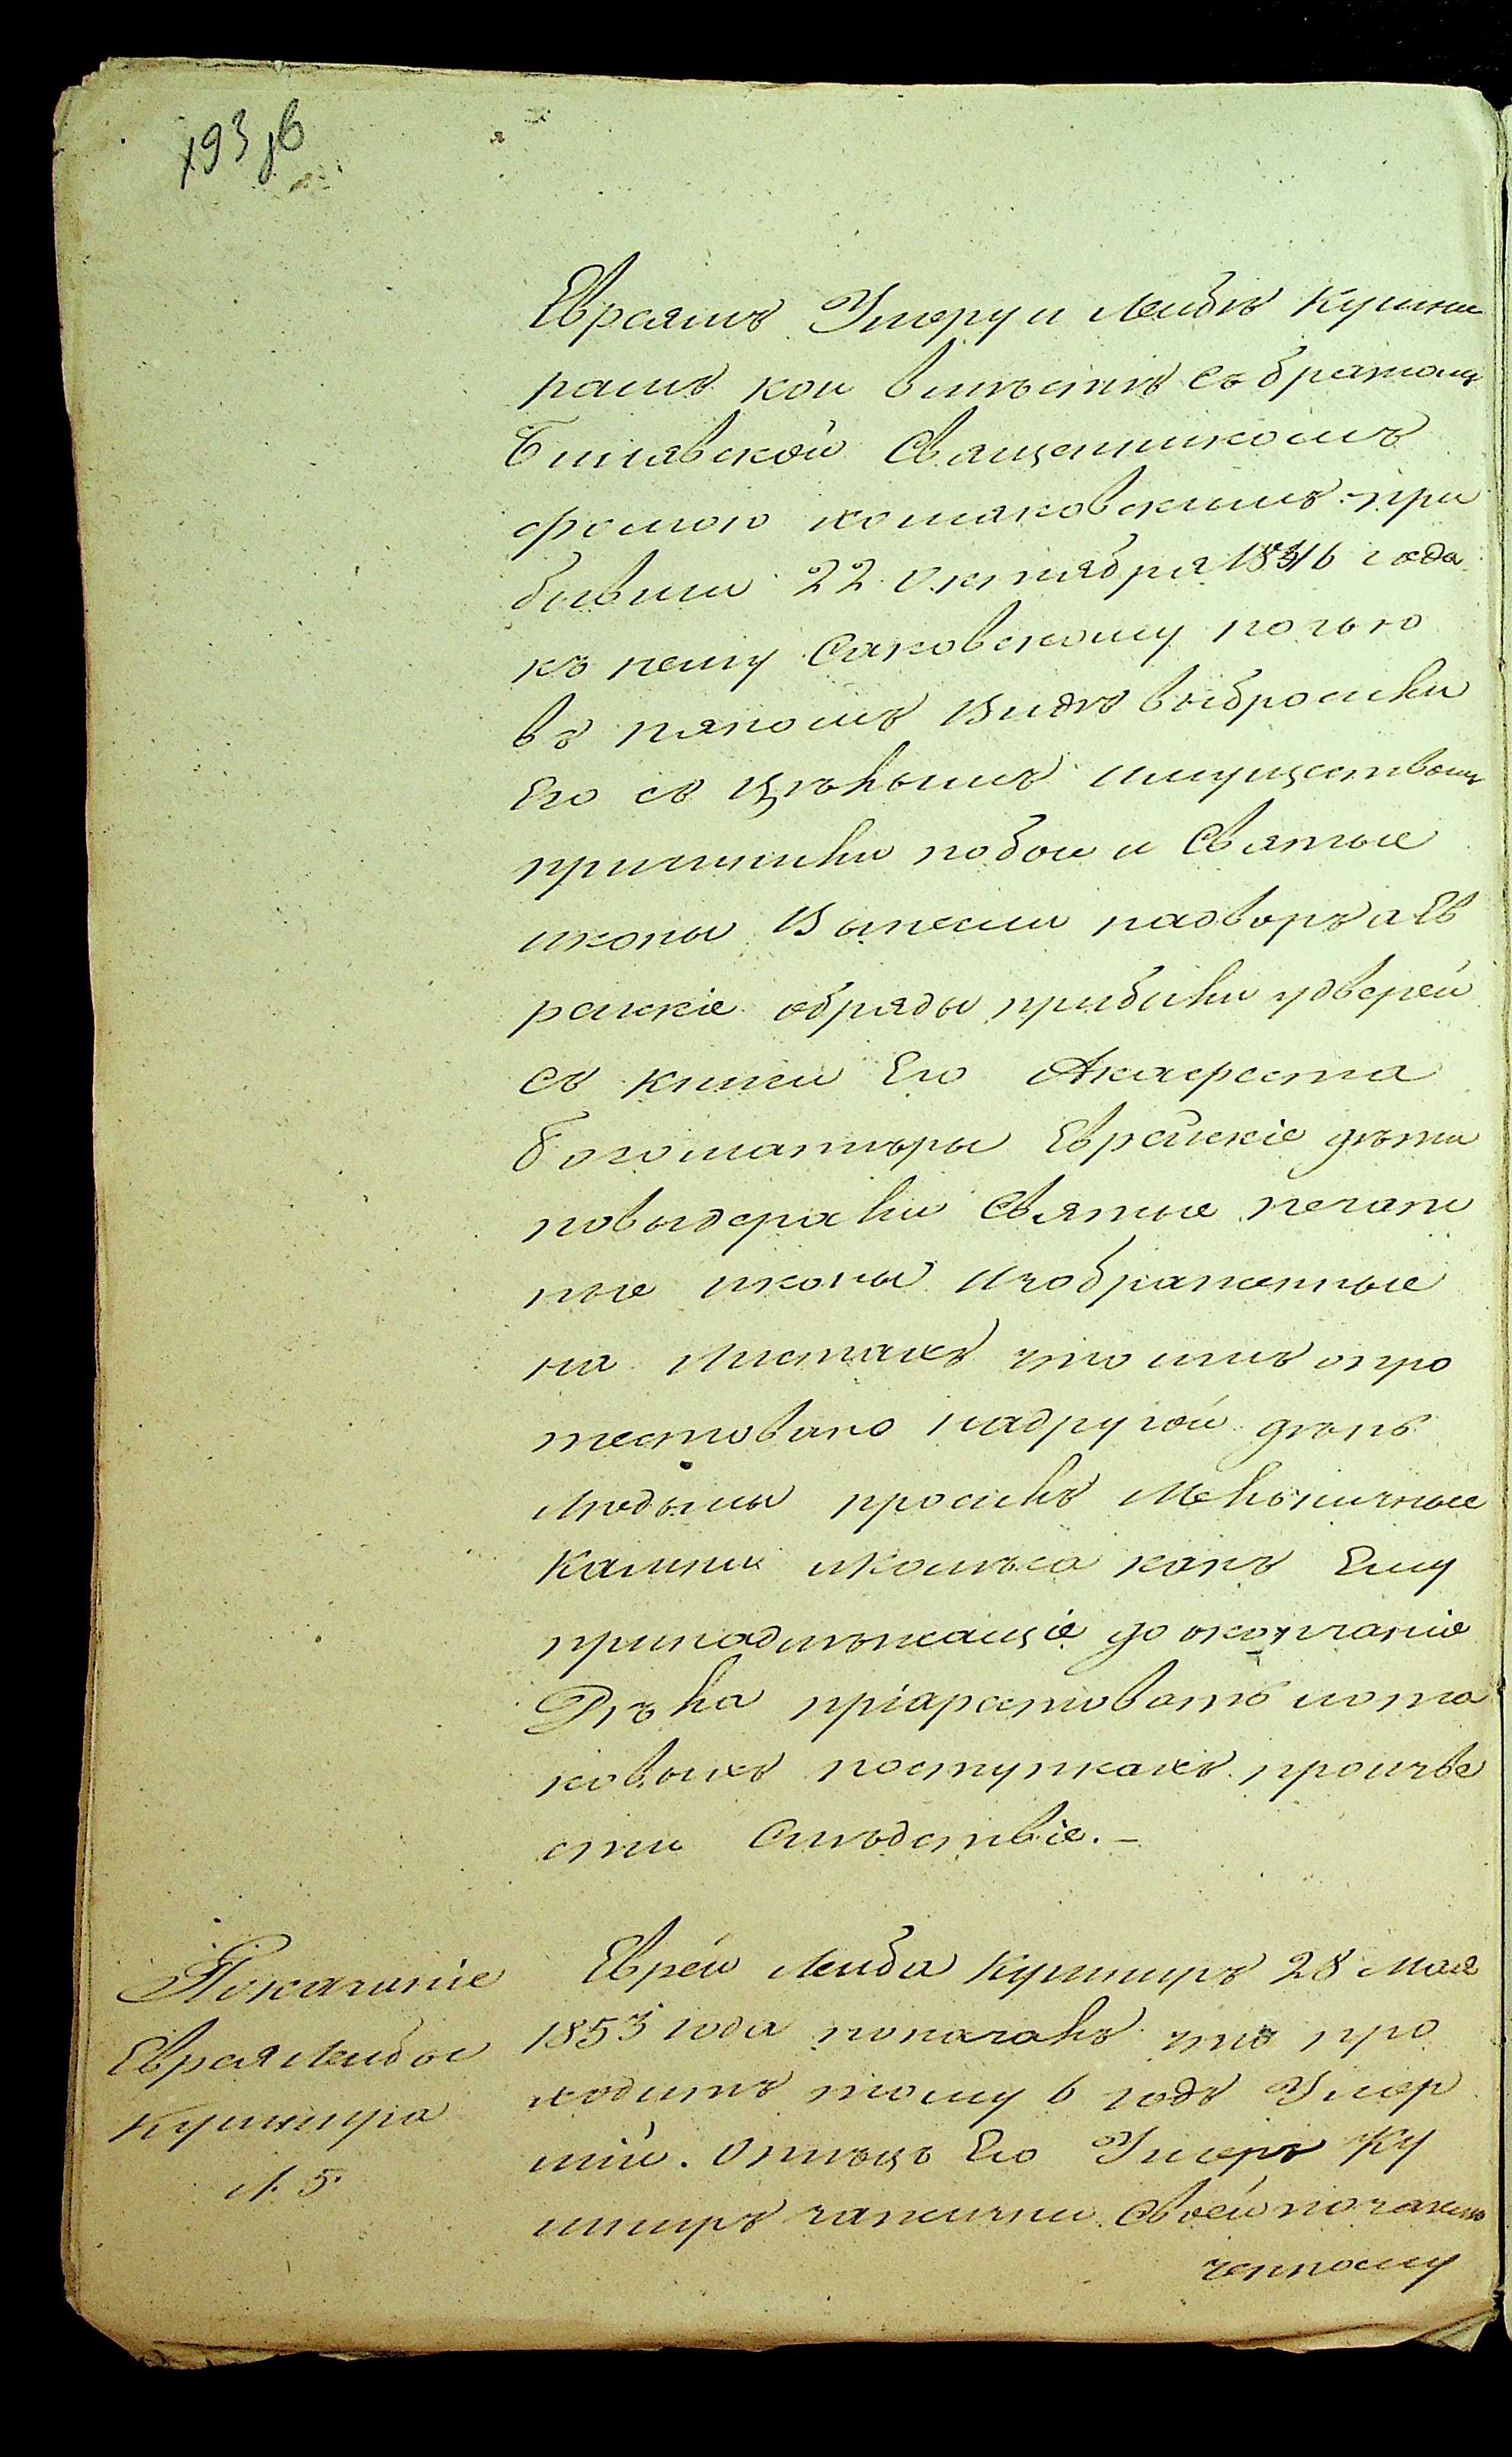 193 об
Евреямъ Умеру и Лейбѣ Кушни
рамъ кои вмѣстѣ съ братомъ
Синявской Священникомъ
Фомою Комаковскимъ при
бывши 22 Октября 1846 года
къ нему Саковскому ночью
въ пяномъ видѣ выбросили
Его съ цѣлымъ имуществомъ
причинили побои и Святые
иконы вынесли надворъ а Ев
рейскіе обряды прибили удверей
съ книги Его Акафеста
Богоматѣры Еврейскіе дѣти
повыдерали Святые печатн
ные иконы изображенные
на листахъ что имъ опро
тестовано надругой день
Людьми просилъ Мельничные
Камни и колѣса какъ Ему
принадлѣжащіе до окончаніе
Дѣла пріарестовать и ота
ковыхъ поступкахъ произве
сти Слѣдствіе. –
Показаніе
Еврея Лейбы
Кушнира
л. 5.
Еврей Лейба Кушниръ 28 Мая
1853 года показалъ что про
ходитъ тому 6 годъ Умер
шій. Отѣцъ Его Умеръ Ку
шниръ занижи Своей
ченному